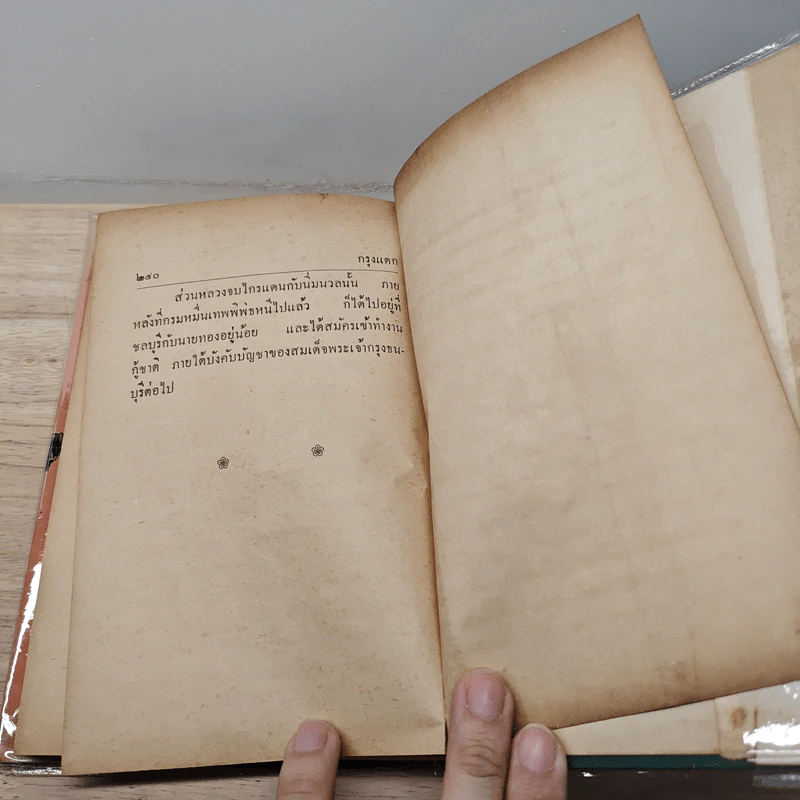 ๒๔๐ กรุงแตก
ส่วนหลวงจบไกรแดนกับนิ่มนวลนั้น ภาย
หลังที่กรมหมื่นเทพพิพิธหนีไปแล้ว ก็ได้ไปอยู่ที่
ชลบุรีกับนายทองอยู่น้อย และได้สมัครเข้าทำงาน
กู้ชาติ ภายใต้บังคับบัญชาของสมเด็จพระเจ้ากรุงธน-
บุรีต่อไป